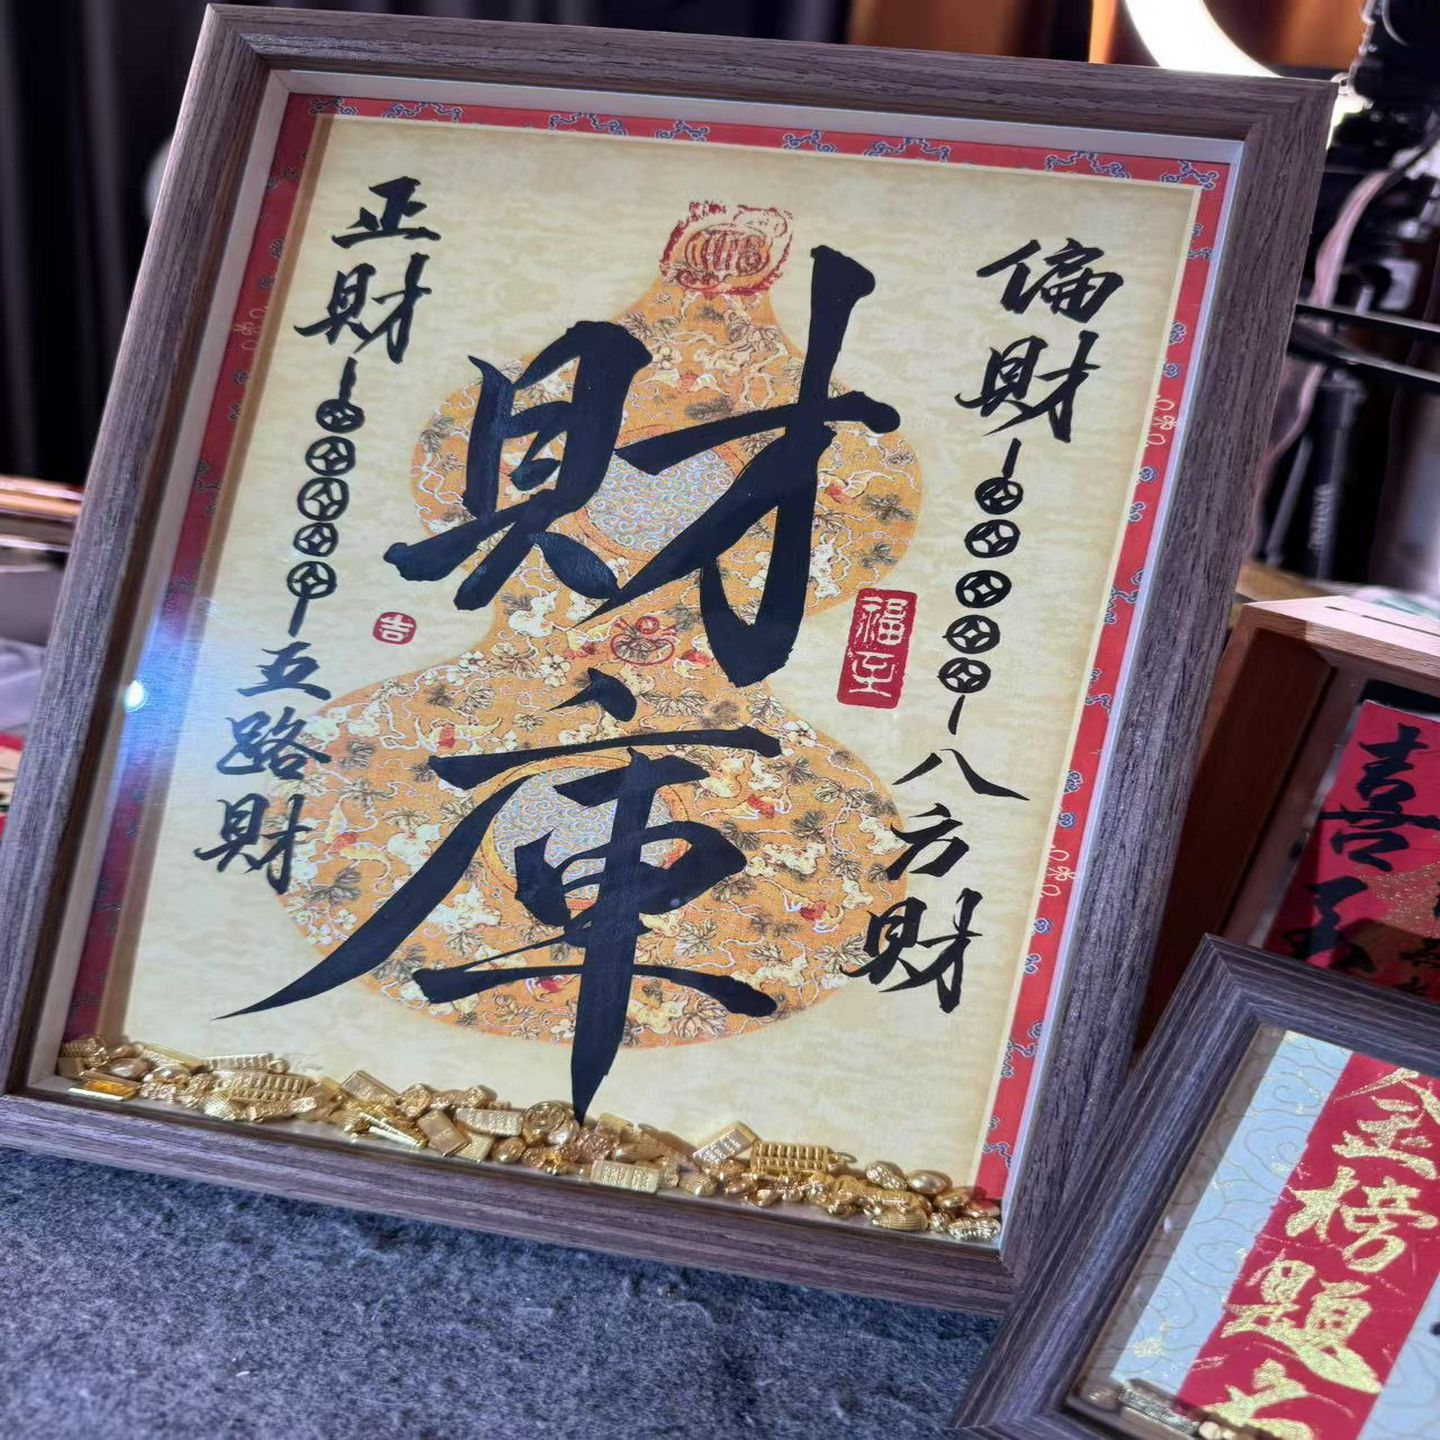 財庫
偏財
八方財
正財
五路財
福至
吉
喜
金榜題